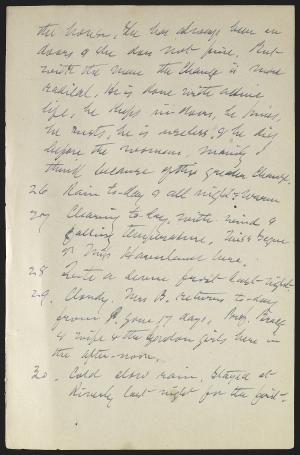 the house. She has always been in
doors & she does not pine. But
with the man the change is more
radical, he is done with active
life, he keeps in-doors, he pines,
he rusts, he is useless, & he dies
before the woman, mainly I
think because of this greater change.
26 Rain to-day & all night & warm
27 Clearing to-day, with wind &
falling temperature.
& Miss here.
28 Quite a heavy frost last night.
29. Cloudy. Mrs B. returns to-day
from gone 17 days. Prof.
& wife & the Gordon girls here in
the after-noon.
30. Cold slow rain, stayed at
Riverby last night for the first-